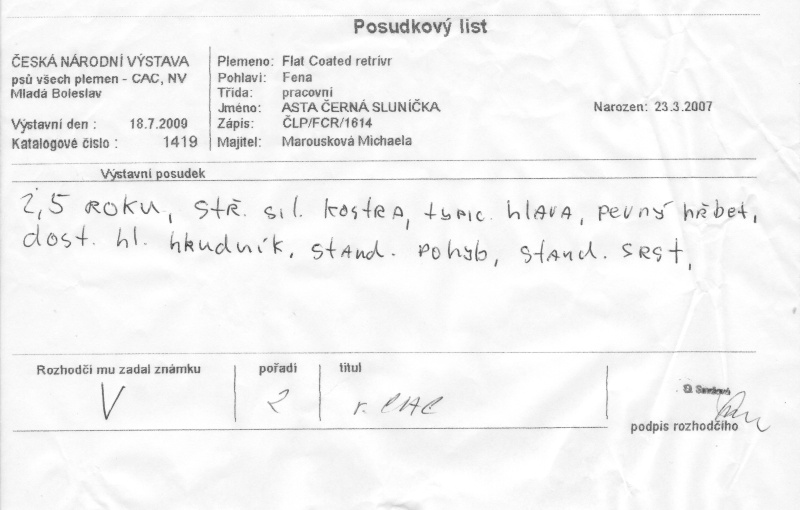 Posudkový list
ČESKÁ NÁRODNÍ VÝSTAVA
psů všech plemen - CAC, NV
Mladá Boleslav
Výstavní den : 18.7.2009
Katalogové číslo : 1419
Plemeno: Flat Coated retrívr
Pohlaví: Fena
Třída: pracovní
Jméno: ASTA ČERNÁ SLUNÍČKA
Narozen: 23.3.2007
Zápis: ČLP/FCR/1614
Majitel: Marousková Michaela
Výstavní posudek
2,5 ROKU, STŘ. sil. KOSTRA, typic. hlAVA, pevný hřbet,
dost. hl. hrudník, STAND. POhyb, STAND. SRST,
Rozhodčí mu zadal známku
V
pořadí
2
titul
r. CAC
podpis rozhodčího